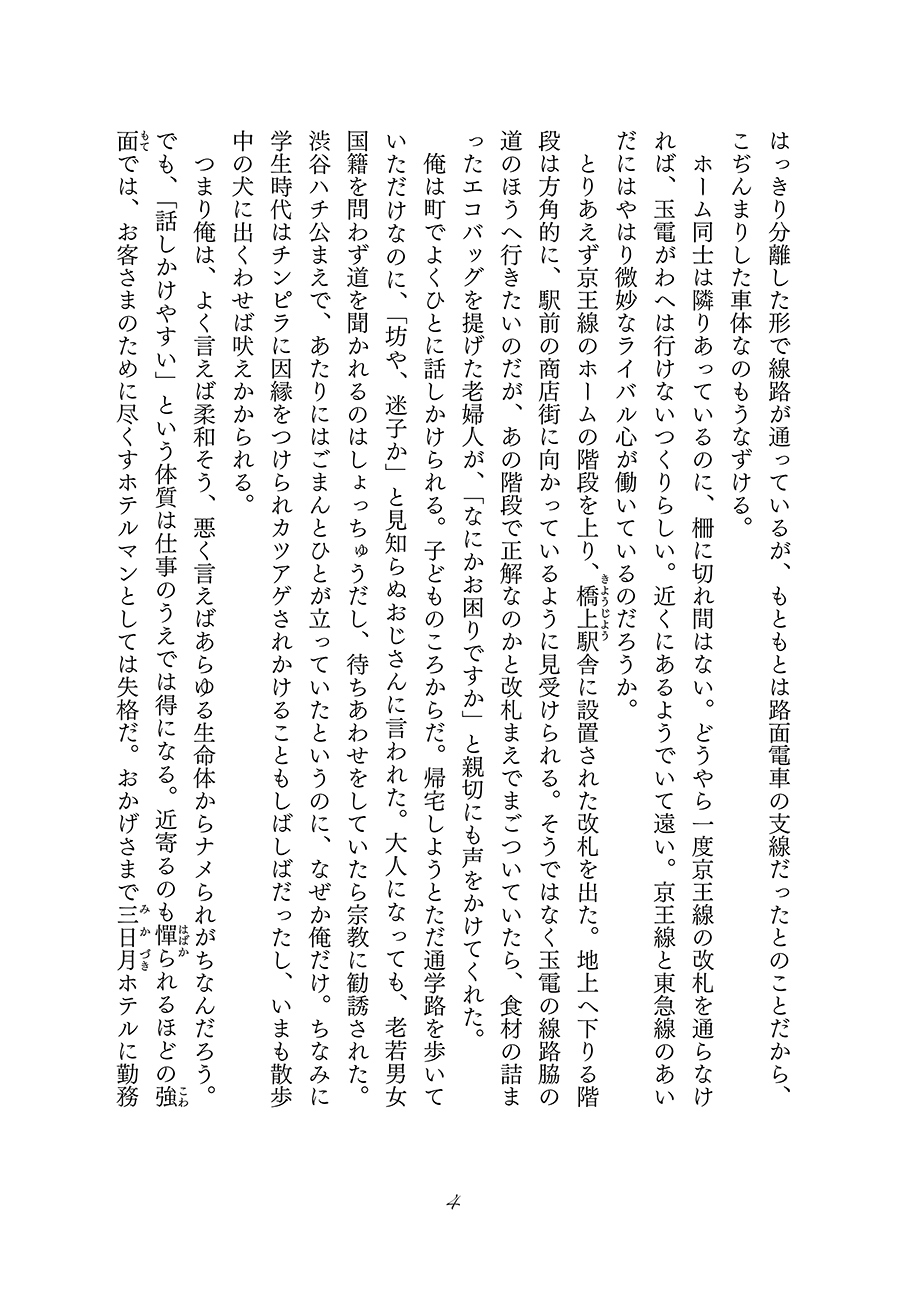 はっきり分離した形で線路が通っているが、もともとは路面電車の支線だったとのことだから、
こぢんまりした車体なのもうなずける。
　ホーム同士は隣りあっているのに、柵に切れ間はない。どうやら一度京王線の改札を通らなけ
れば、玉電がわへは行けないつくりらしい。近くにあるようでいて遠い。京王線と東急線のあい
だにはやはり微妙なライバル心が働いているのだろうか。
　とりあえず京王線のホームの階段を上り、橋上駅舎に設置された改札を出た。地上へ下りる階
段は方角的に、駅前の商店街に向かっているように見受けられる。そうではなく玉電の線路脇の
道のほうへ行きたいのだが、あの階段で正解なのかと改札まえでまごついていたら、食材の詰ま
ったエコバッグを提げた老婦人が、「なにかお困りですか」と親切にも声をかけてくれた。
　俺は町でよくひとに話しかけられる。子どものころからだ。帰宅しようとただ通学路を歩いて
いただけなのに、「坊や、迷子か」と見知らぬおじさんに言われた。大人になっても、老若男女
国籍を問わず道を聞かれるのはしょっちゅうだし、待ちあわせをしていたら宗教に勧誘された。
渋谷ハチ公まえで、あたりにはごまんとひとが立っていたというのに、なぜか俺だけ。ちなみに
学生時代はチンピラに因縁をつけられカツアゲされかけることもしばしばだったし、いまも散歩
中の犬に出くわせば吠えかかられる。
　つまり俺は、よく言えば柔和そう、悪く言えばあらゆる生命体からナメられがちなんだろう。
でも、「話しかけやすい」という体質は仕事のうえでは得になる。近寄るのも憚られるほどの強
面では、お客さまのために尽くすホテルマンとしては失格だ。おかげさまで三日月ホテルに勤務
4